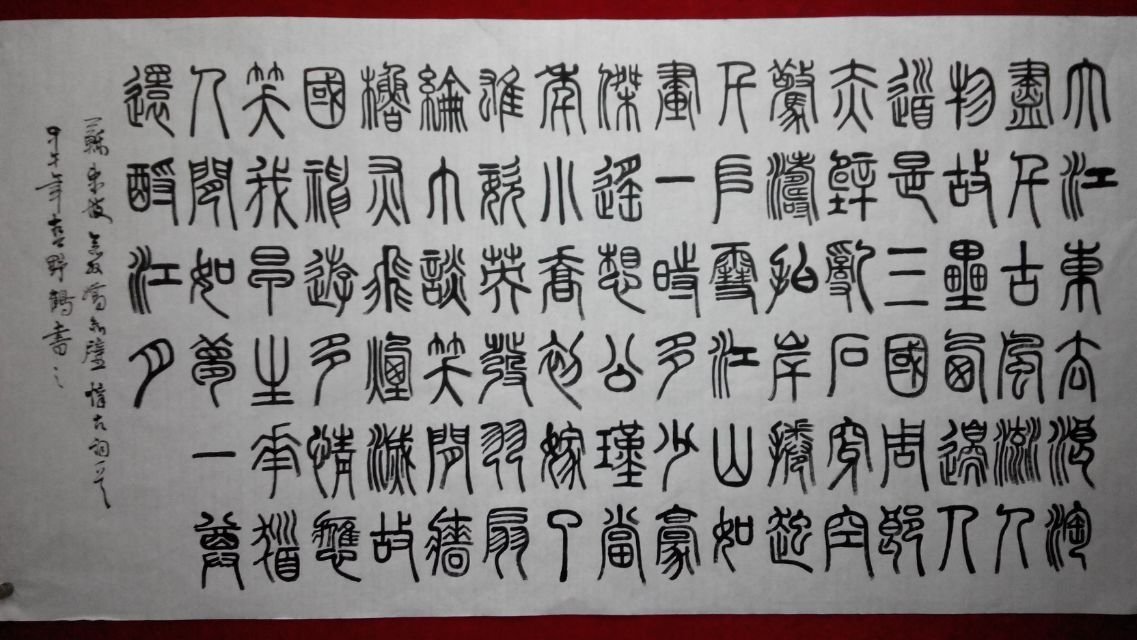 大江東去浪淘
盡千古風流人
物故壘西邊人
道是三國周郎
赤壁亂石穿空
驚濤拍岸捲起
千堆雪江山如
畫一時多少豪
傑遙想公瑾當
年小喬初嫁了
雄姿英發羽扇
綸巾談笑間牆
櫓灰飛煙滅故
國神遊多情應
笑我早生華髮
人間如夢一尊
還酹江月
蘇東坡念奴嬌赤壁懷古詞一首
甲午年野鶴書之